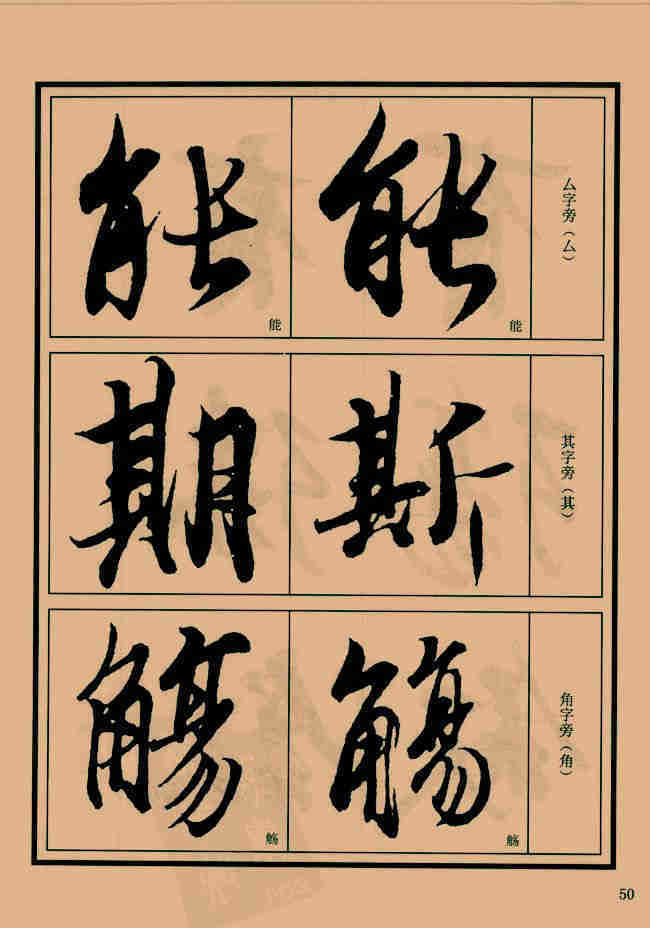 厶字旁（厶）
能
能
能
能
其字旁（其）
斯
期
角字旁（角）
觞
觞
觞
觞
50